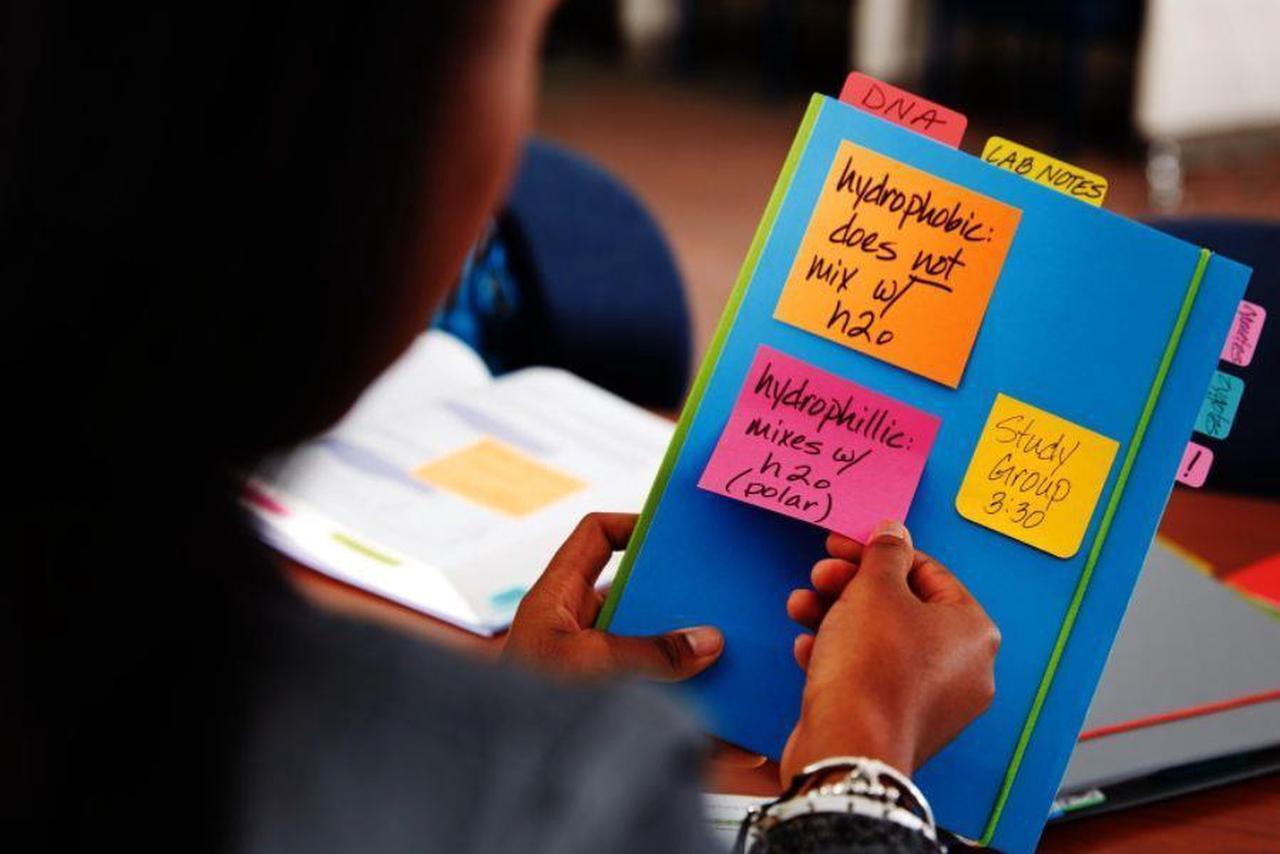 DNA
LAB NOTES
hydrophobic:
does not
mix w/
h2o
hydrophillic:
mixes w/
h2o
(polar)
Study
Group
3:30
!